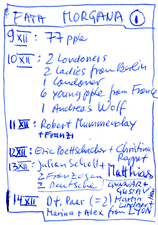 FATA MORGANA 1
9 XII: 77 pple
10 XII: 2 Londoners
2 Ladies from Berlin
1 Londoner
6 young pple from France
1 Andreas Wolf
11 XII: Robert Mummenolay
+ Franzi
12 XII: Eric Poettschacher + Christine
13 XII: Julien Scholl +
2 Franzosen
2 Deutsche
Matthias
GUNNAR +
GUSTAV
14 XII: Dt. Paar (=2) Martin
Marina + Alex from LYON